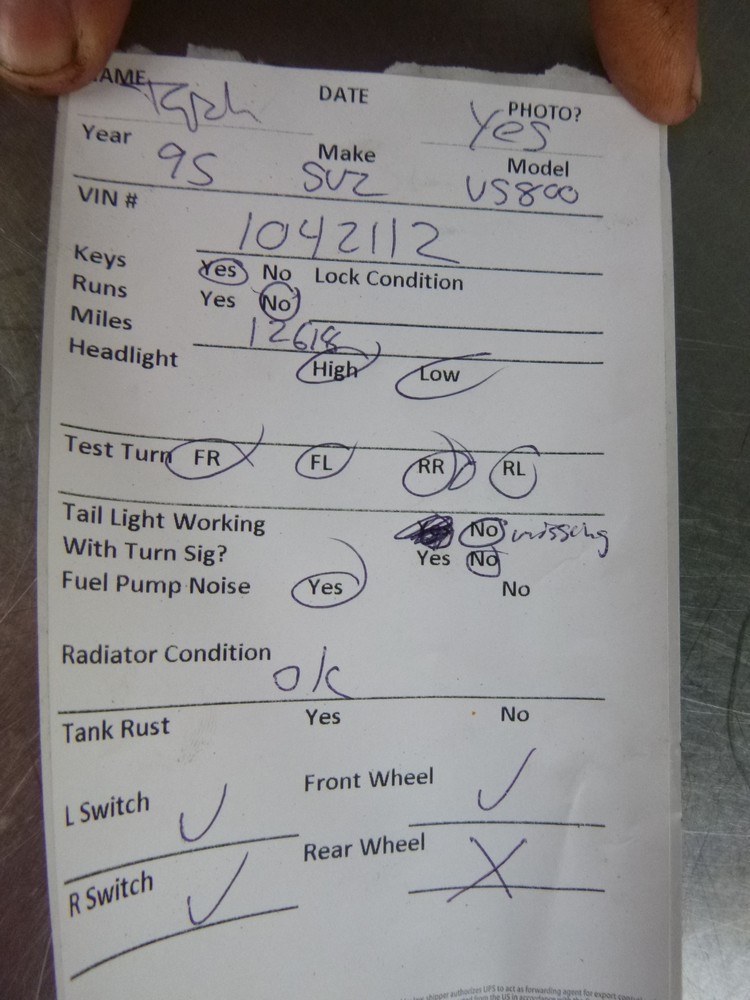 NAME DATE PHOTO?
Yes
Year 95 Make SUZ Model VS800
VIN # 1042112
Keys Yes No Lock Condition
Runs Yes No
Miles 12618
Headlight High Low
Test Turn FR FL RR RL
Tail Light Working Yes No missing
With Turn Sig? Yes No
Fuel Pump Noise Yes No
Radiator Condition ok
Tank Rust Yes No
L Switch ✓ Front Wheel ✓
R Switch ✓ Rear Wheel X
shipper authorizes UPS to act as forwarding agent for export